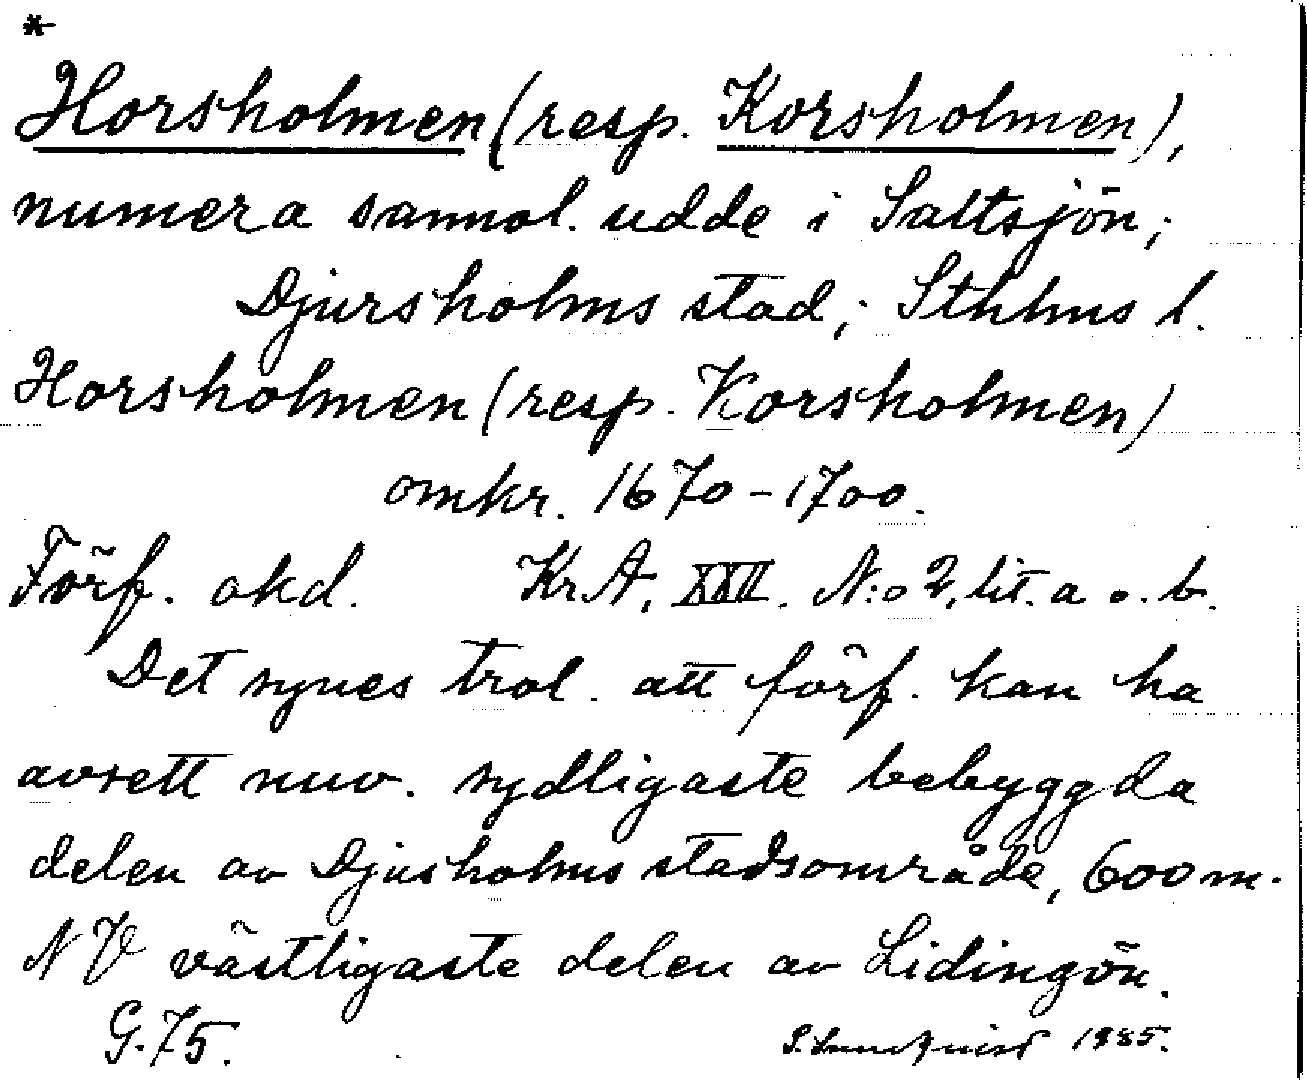 *
Horsholmen (resp. Korsholmen),
numera sannol. udde i Saltsjön;
Djursholms stad; Sthlms l.
Horsholmen (resp. Korsholmen)
omkr. 1670-1700.
Förf. okd. KrA, XXII. N:o 2, lit. a o. b.
Det synes trol. att förf. kan ha
avsett nuv. sydligaste bebyggda
delen av Djusholms stadsområde, 600 m.
NV västligaste delen av Lidingön.
G. 75. S. Lundquist 1985.